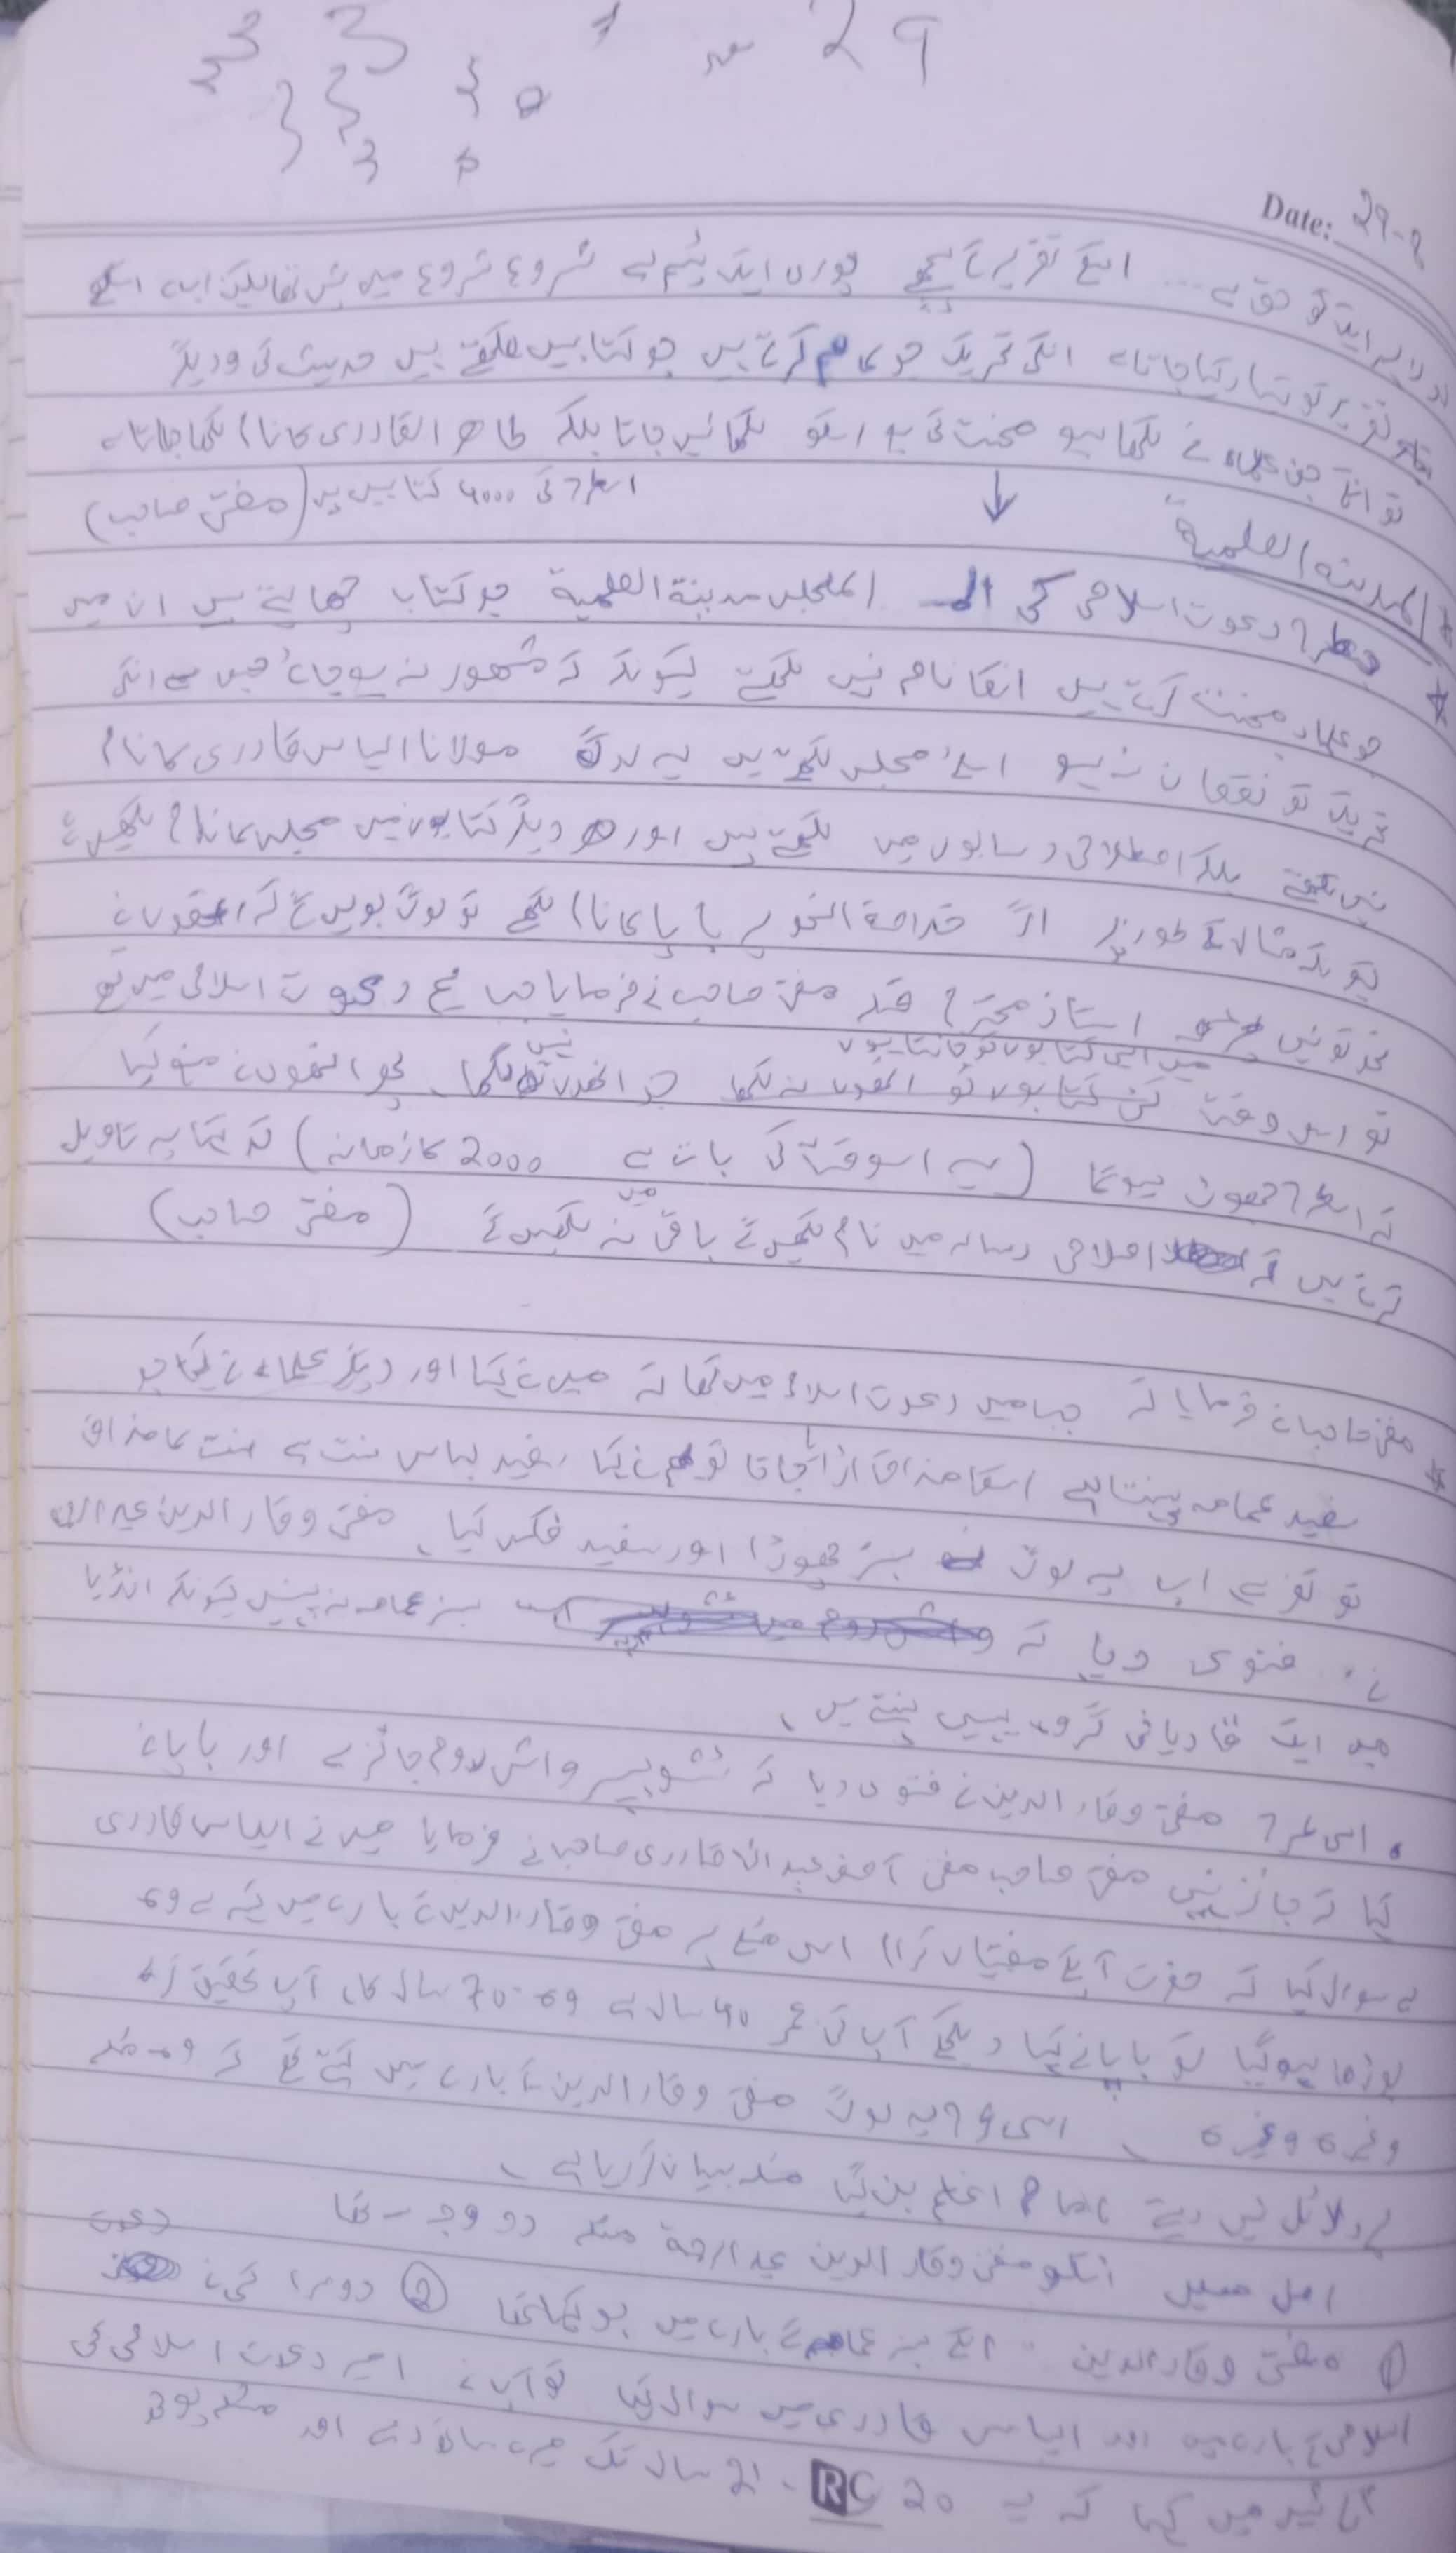 29
Date: 29-9
انکے تقریر کے پیچھے پوری ایک ٹیم ہے شروع شروع میں نہیں تھا لیکن اب انکے
تقریر کو تیار کیا جاتا ہے انکی تحریک جو کام کرتے ہیں جو کتابیں لکھتے ہیں حدیث کی و دیگر
تو انکے جن علماء نے لکھا ہو محنت کی ہے اسکو لکھا نہیں جاتا بلکہ طاھر القادری کا نام لکھا جاتا ہے
اسطرح کی 4000 کتابیں ہیں (مفتی صاحب)
المدینۃ العلمیۃ
دعوت اسلامی کی المجلس مدینۃ العلمیۃ جو کتاب چھاپتے ہیں ان میں
جو علماء محنت کرتے ہیں انکا نام نہیں لکھتے کیونکہ کہ مشھور نہ ہو جائے جس سے انکی
تحریک کو نقصان نہ ہو اسلئے مجلس لکھتے ہیں یہ لوگ مولانا الیاس قادری کا نام
نہیں لکھتے بلکہ اصلاحی رسالوں میں لکھتے ہیں اور دیگر کتابوں میں مجلس کا نام لکھیں گے
کیونکہ مثال کے طور پر اگر خلاصۃ النحو پر بابا کا نام لکھے تو لوگ بولیں گے کہ انھوں نے
نحو تو نہیں استاذ محترم مفتی صاحب نے فرمایا جب میں دعوت اسلامی میں تھے
میں ایسی کتابوں کو جانتا ہوں
تو اس وقت کئی کتابوں کو انھوں نے لکھا جو انھوں نے نہیں لکھا، پھر انھوں نے منع کیا
کہ اسطرح جھوٹ ہوگا (یہ اسوقت کی بات ہے 2000 کا زمانہ) کہ یہ تاویل
کرتے ہیں کہ اصلاحی رسالہ میں نام لکھیں گے باقی میں نہ لکھیں گے (مفتی صاحب)
مفتی صاحب نے فرمایا کہ جب میں دعوت اسلامی میں تھا تو میں نے کہا اور دیگر علماء نے کہا جو
سفید عمامہ پہنتا ہے اسکا مذاق اڑایا جاتا تو ہم نے کہا سفید لباس سنت ہے سنت کا مذاق
تو کفر ہے اب یہ لوگ سبز چھوڑا اور سفید فکس کیا، مفتی وقار الدین علیہ الرحمہ
نے فتوی دیا کہ سبز عمامہ نہ پہنیں کیونکہ انڈیا
میں ایک قادیانی گروہ یہی پہنتے ہیں،
اس طرح مفتی وقار الدین نے فتوی دیا کہ ٹشو پیپر واش روم جائز ہے اور بابا نے
کہا کہ جائز نہیں مفتی صاحب مفتی آصف عبد اللہ قادری صاحب نے فرمایا میں نے الیاس قادری
سے سوال کیا کہ حضرت آپکے مفتیان کرام اس مسئلے پر مفتی وقار الدین کے بارے میں کہتے ہے وہ
بوڑھا ہو گیا تو بابا نے کہا دیکھے آپ کی عمر 40 سال ہے وہ 70 سال کا، آپ تحقیق
وغیرہ وغیرہ، اسی طرح یہ لوگ مفتی وقار الدین کے بارے میں کہتے تھے کہ وہ مسئلہ
کے دلائل نہیں دیتے امام اعظم بن گیا مسئلہ بیان کر رہا ہے،
اصل میں انکو مفتی وقار الدین علیہ الرحمۃ مسئلہ دو وجہ سے تھا
① مفتی وقار الدین انکے سبز عمامے کے بارے میں جو لکھا تھا ② دوسرا کسی نے دعوت
اسلامی کے بارے میں اور الیاس قادری میں سوال کیا تو آپ نے امیر دعوت اسلامی کی
تائید میں کہا کہ یہ 20، 21 سال تک میرے ساتھ رہے اور مسئلہ پوچھ